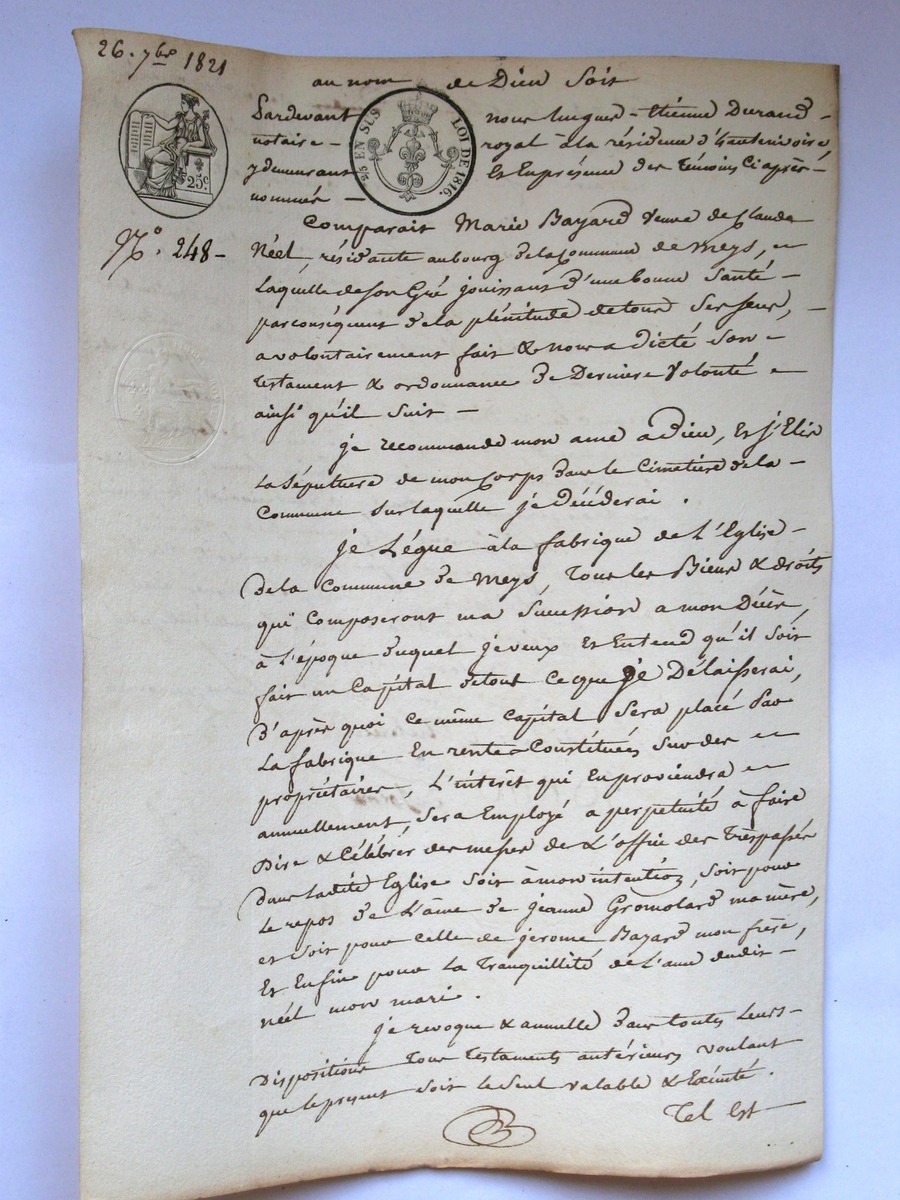 26. 7bre 1821
au nom de Dieu Soit
25c
2/5 EN SUS LOI DE 1816.
Pardevant nous hugues-étienne Durand-
notaire - royal à la résidence d'hauterivoire,
y demeurant Et En présence des témoins Ci après-
nommés -
N.o 248 -
Comparait Marie Bayard Veuve de Claude
Néel, résidante au bourg de la Commune de Meys,
Laquelle de Son Gré jouissant d'une bonne Santé -
par conséquent de la plénitude de tous Ses Sens, -
a volontairement fait & nous a dicté Son -
testament & ordonnance de Derniere Volonté
ainsi qu'il Suit -
je recommande mon ame a Dieu, Et j'Elis
La Sépulture de mon Corps dans le Cimetière de la -
Commune Sur laquelle je Décéderai .
je Lègue à la fabrique de L'Eglise -
De la Commune de Meys, tous les Biens & droits
qui Composeront ma Succession a mon Décès,
à L'époque duquel je veux Et Entend qu'il Soit
fait un Capital de tout Ce que je Délaisserai,
D'après quoi Ce même Capital Sera placé Par
La fabrique En rente Constituées Sur des
propriétaires, L'intérêt qui En proviendra
annuellement, Sera Employé a perpetuité à faire
Dire & Célébrer des messes & L'office des Trépassés
Dans ladite Eglise Soit à mon intention, Soit pour
Le repos de L'âme de Jeanne Gromolard ma mère,
et Soit pour celle de jerome Bayard mon frère,
Et Enfin pour La Tranquillité de L'ame dudit -
Néel mon mari .
je revoque & annulle dans toutes Leurs -
Dispositions tous Testaments antérieurs voulant
que le présent Soit le Seul valable & Exécuté .
Tel Est